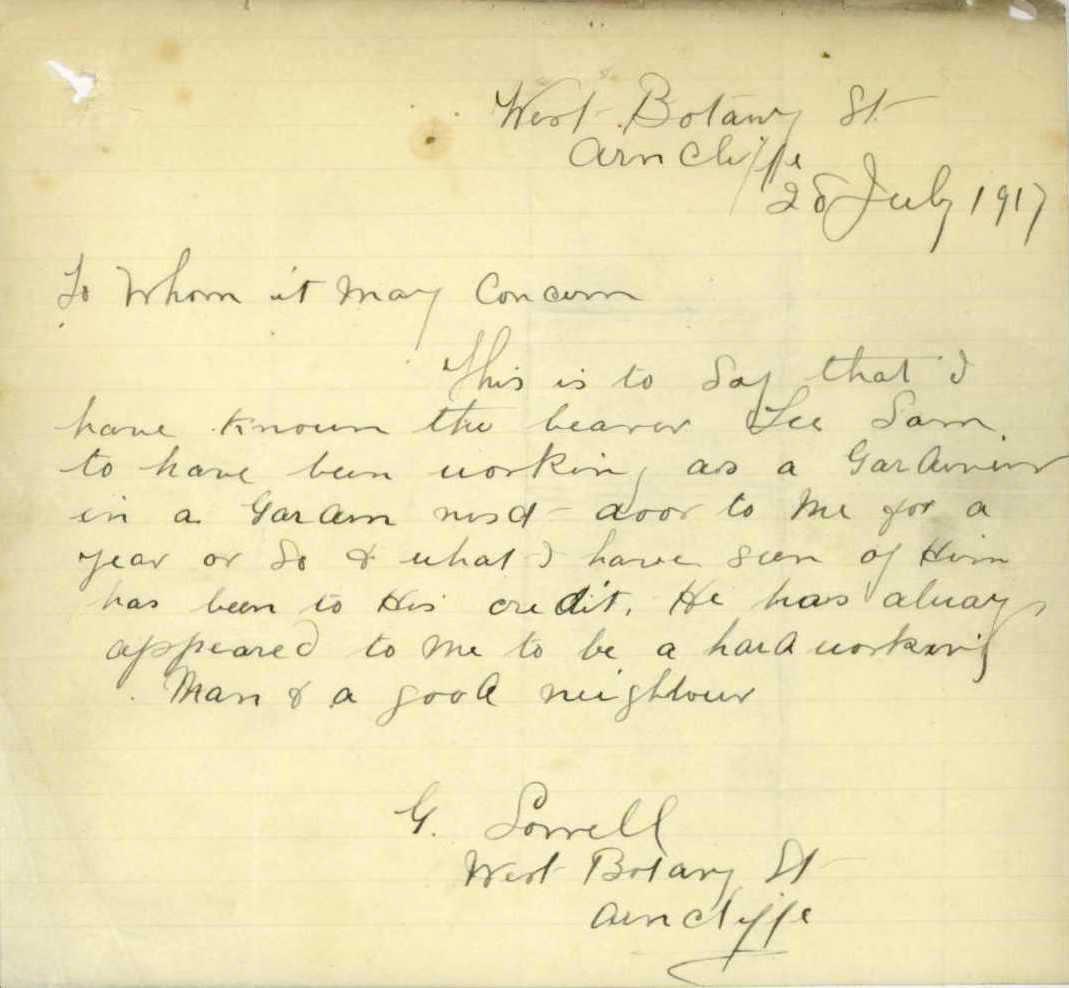 West Botany St
Arncliffe
28 July 1917
To Whom it May Concern
This is to Say that I
have known the bearer Lee Sam,
to have been working as a Gardener
in a Garden next door to Me for a
year or So & what I have seen of Him
has been to His credit. He has always
appeared to Me to be a hard working
Man & a good neighbour
G. Sorrell
West Botany St
Arncliffe